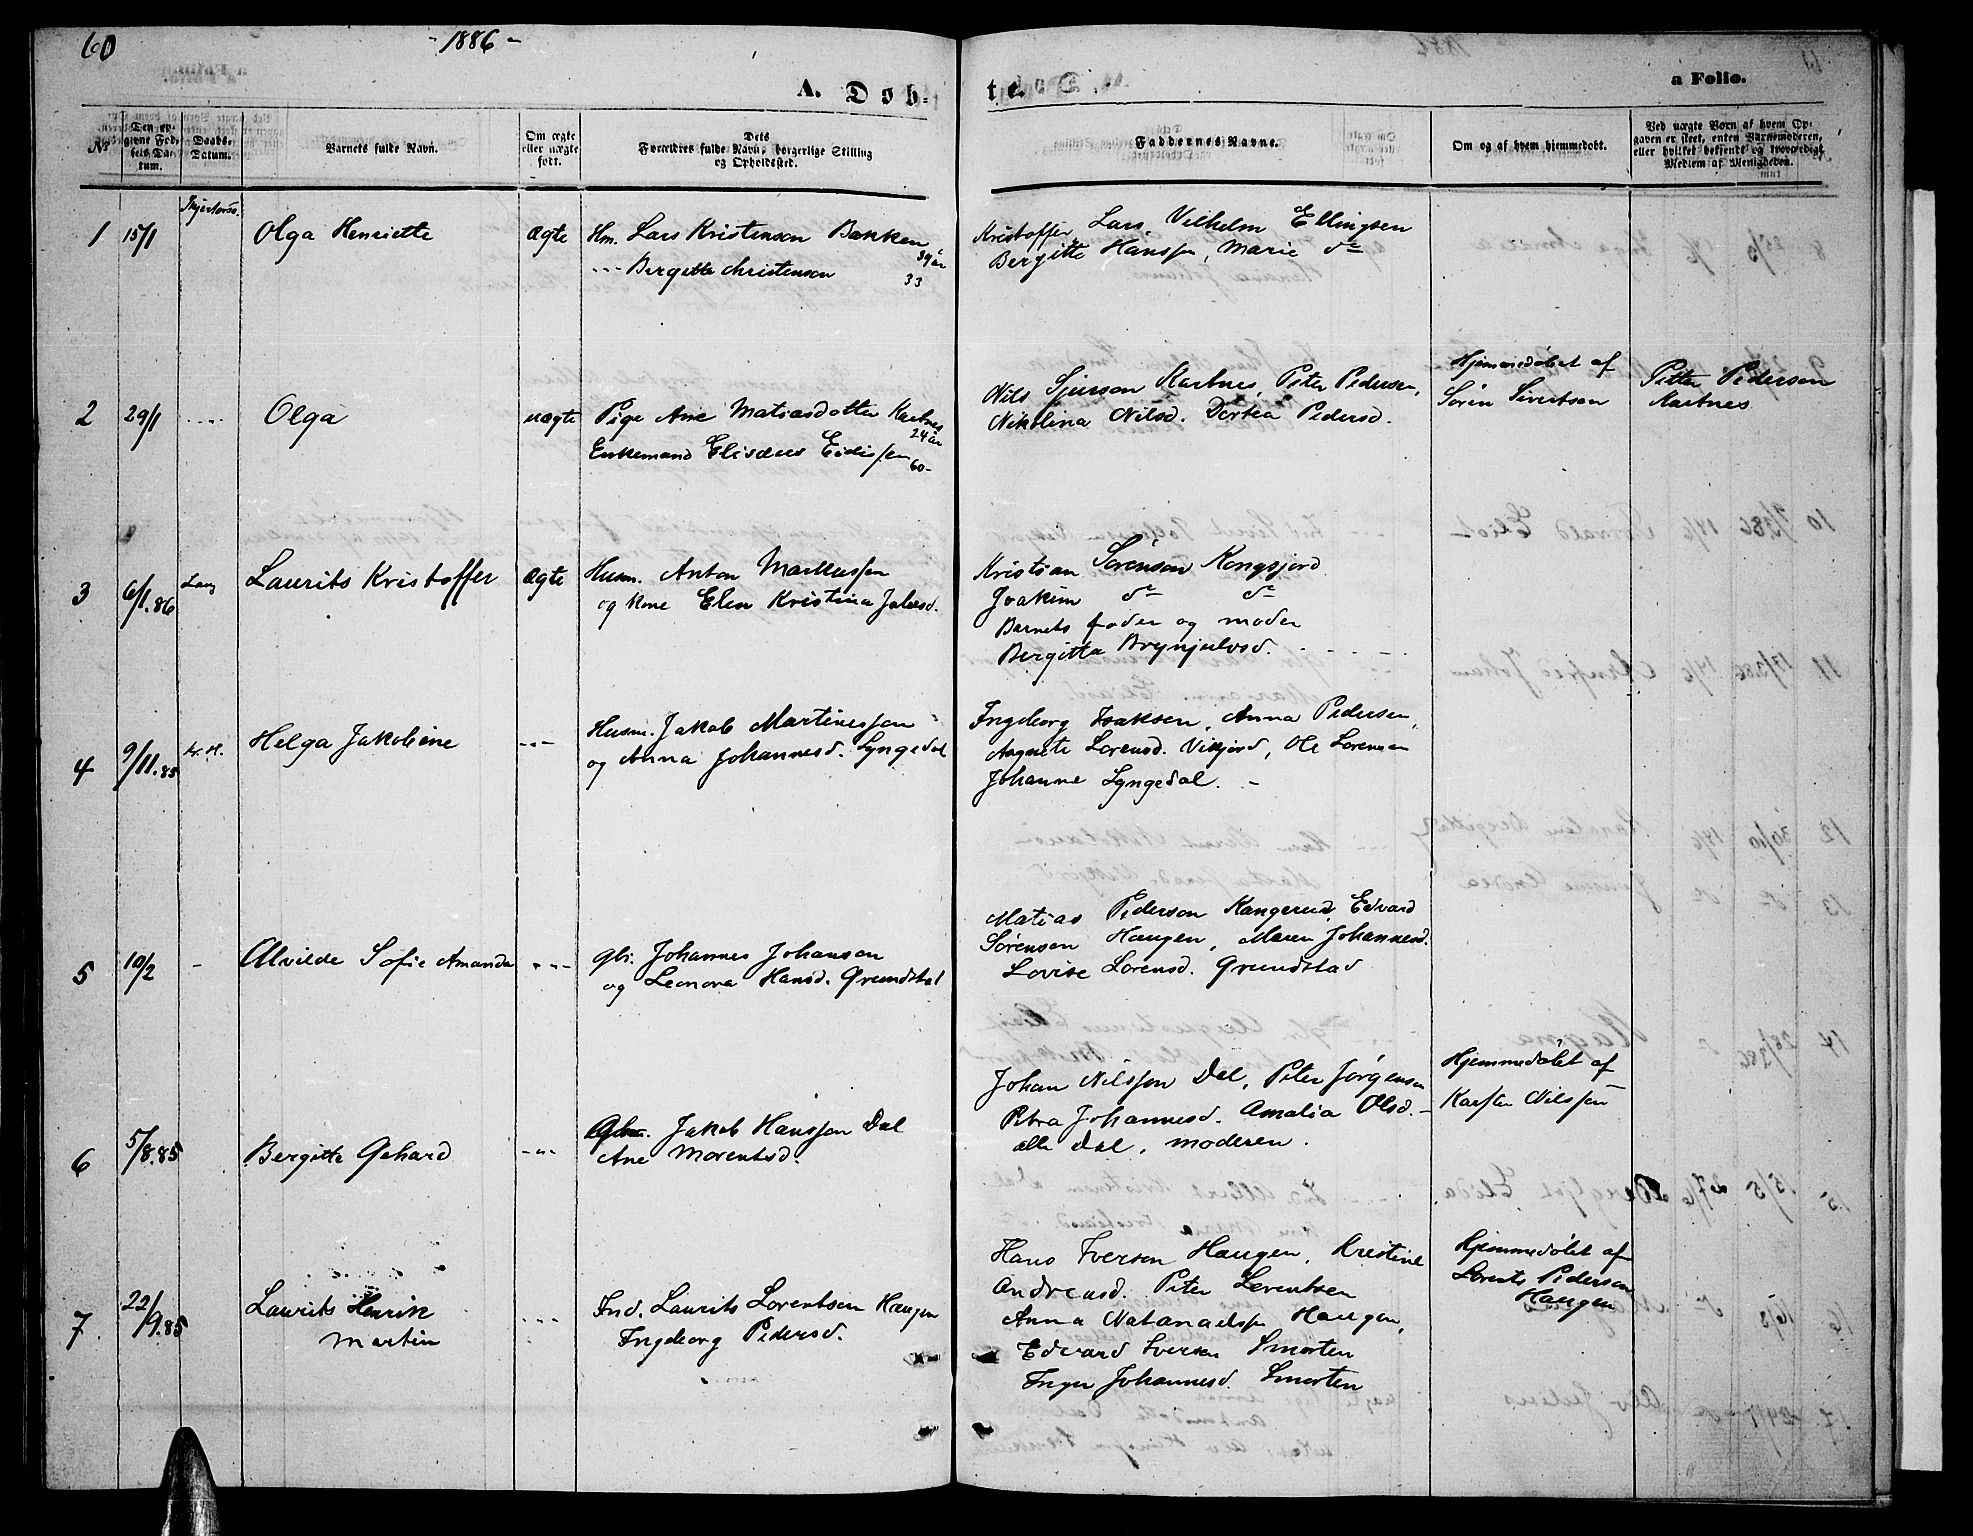 60
- 1886 -
A. Døb-
te.
a Folio.
№
Den op-
givne Fød-
sels Da-
tum.
Daabs-
Datum.
Barnets fulde Navn.
Om ægte
eller uægte
født.
Dets
Forældres fulde Navn, borgerlige Stilling
og Opholdssted.
Faddernes Navne.
Om og af hvem hjemmedøbt.
Ved uægte Born af hvem Op-
gaven er skeet, enten Barnemoderen,
eller hvilket bekjendt og troværdigt
Medlem af Menigheden.
1
15/1
Olga Henriette
Ægte
Hm. Lars Kristensen Bakken
34 år
Bergette Christensen
33
Kristoffer Lars, Vilhelm Ellingsen
Bergitte Hanssen, Marie do
2
29/1
Olga
uægte
Pige Ane Matiasdatter Kartnes
24 år
Enkemand Elisæus Eidissen
60-
Nils Sjurson Kartnes, Peter Pedersen,
Nikolina Nilsd. Dortea Pedersd.
Hjemmedøbt af
Søren Sivertsen
Petter Pederson
Kartnes
3
6/1.86
Lang
Laurits Kristoffer
Ægte
Husm. Anton Markussen
og kone Elen Kristina Jakobsd.
Kristian Sørenson Kongsjord
Joakim do do
Barnets fader og moder
Bergitta Brynjulvsd.
4
9/11.85
Helga Jakobine
Husm. Jakob Martinussen
og Anna Johannesd. Lyngedal
Ingeborg Isaksen, Anna Pedersen,
Angnete Lorensd. Vikjord, Ole Lorensen
Johanne Lyngedal. -
5
10/2
-
Alvilde Sofie Amanda
Gbr. Johannes Johanson
og Leonora Hansd. Grundstad
Matias Pederson Kangerud, Edvard
Sørenson Haugen, Maren Johannesd.
Lovise Lorensd. Grundstad
6
5/8.85
Bergitte Gehard
Gbr. Jakob Hanssen Dal
Ane Morentsd.
Johan Nilssen Dal, Peter Jørgensen
Petra Johannesd. Amalia Olsd. -
alle Dal, moderen.
Hjemmedøbt af
Karsten Nilssen
7
22/9.85
Laurits Henrik
Martin
Ind. Laurits Lorentsen Haugen
Ingeborg Pedersd.
Hans Iversen Haugen, Kristine
Andreasd. Peter Lorentsen
Anna Natanaelsen Haugen,
Edvard Iversen Smorten
Inger Johannesd. Smorten
Hjemmedøbt af
Lorents Pederson
Haugen